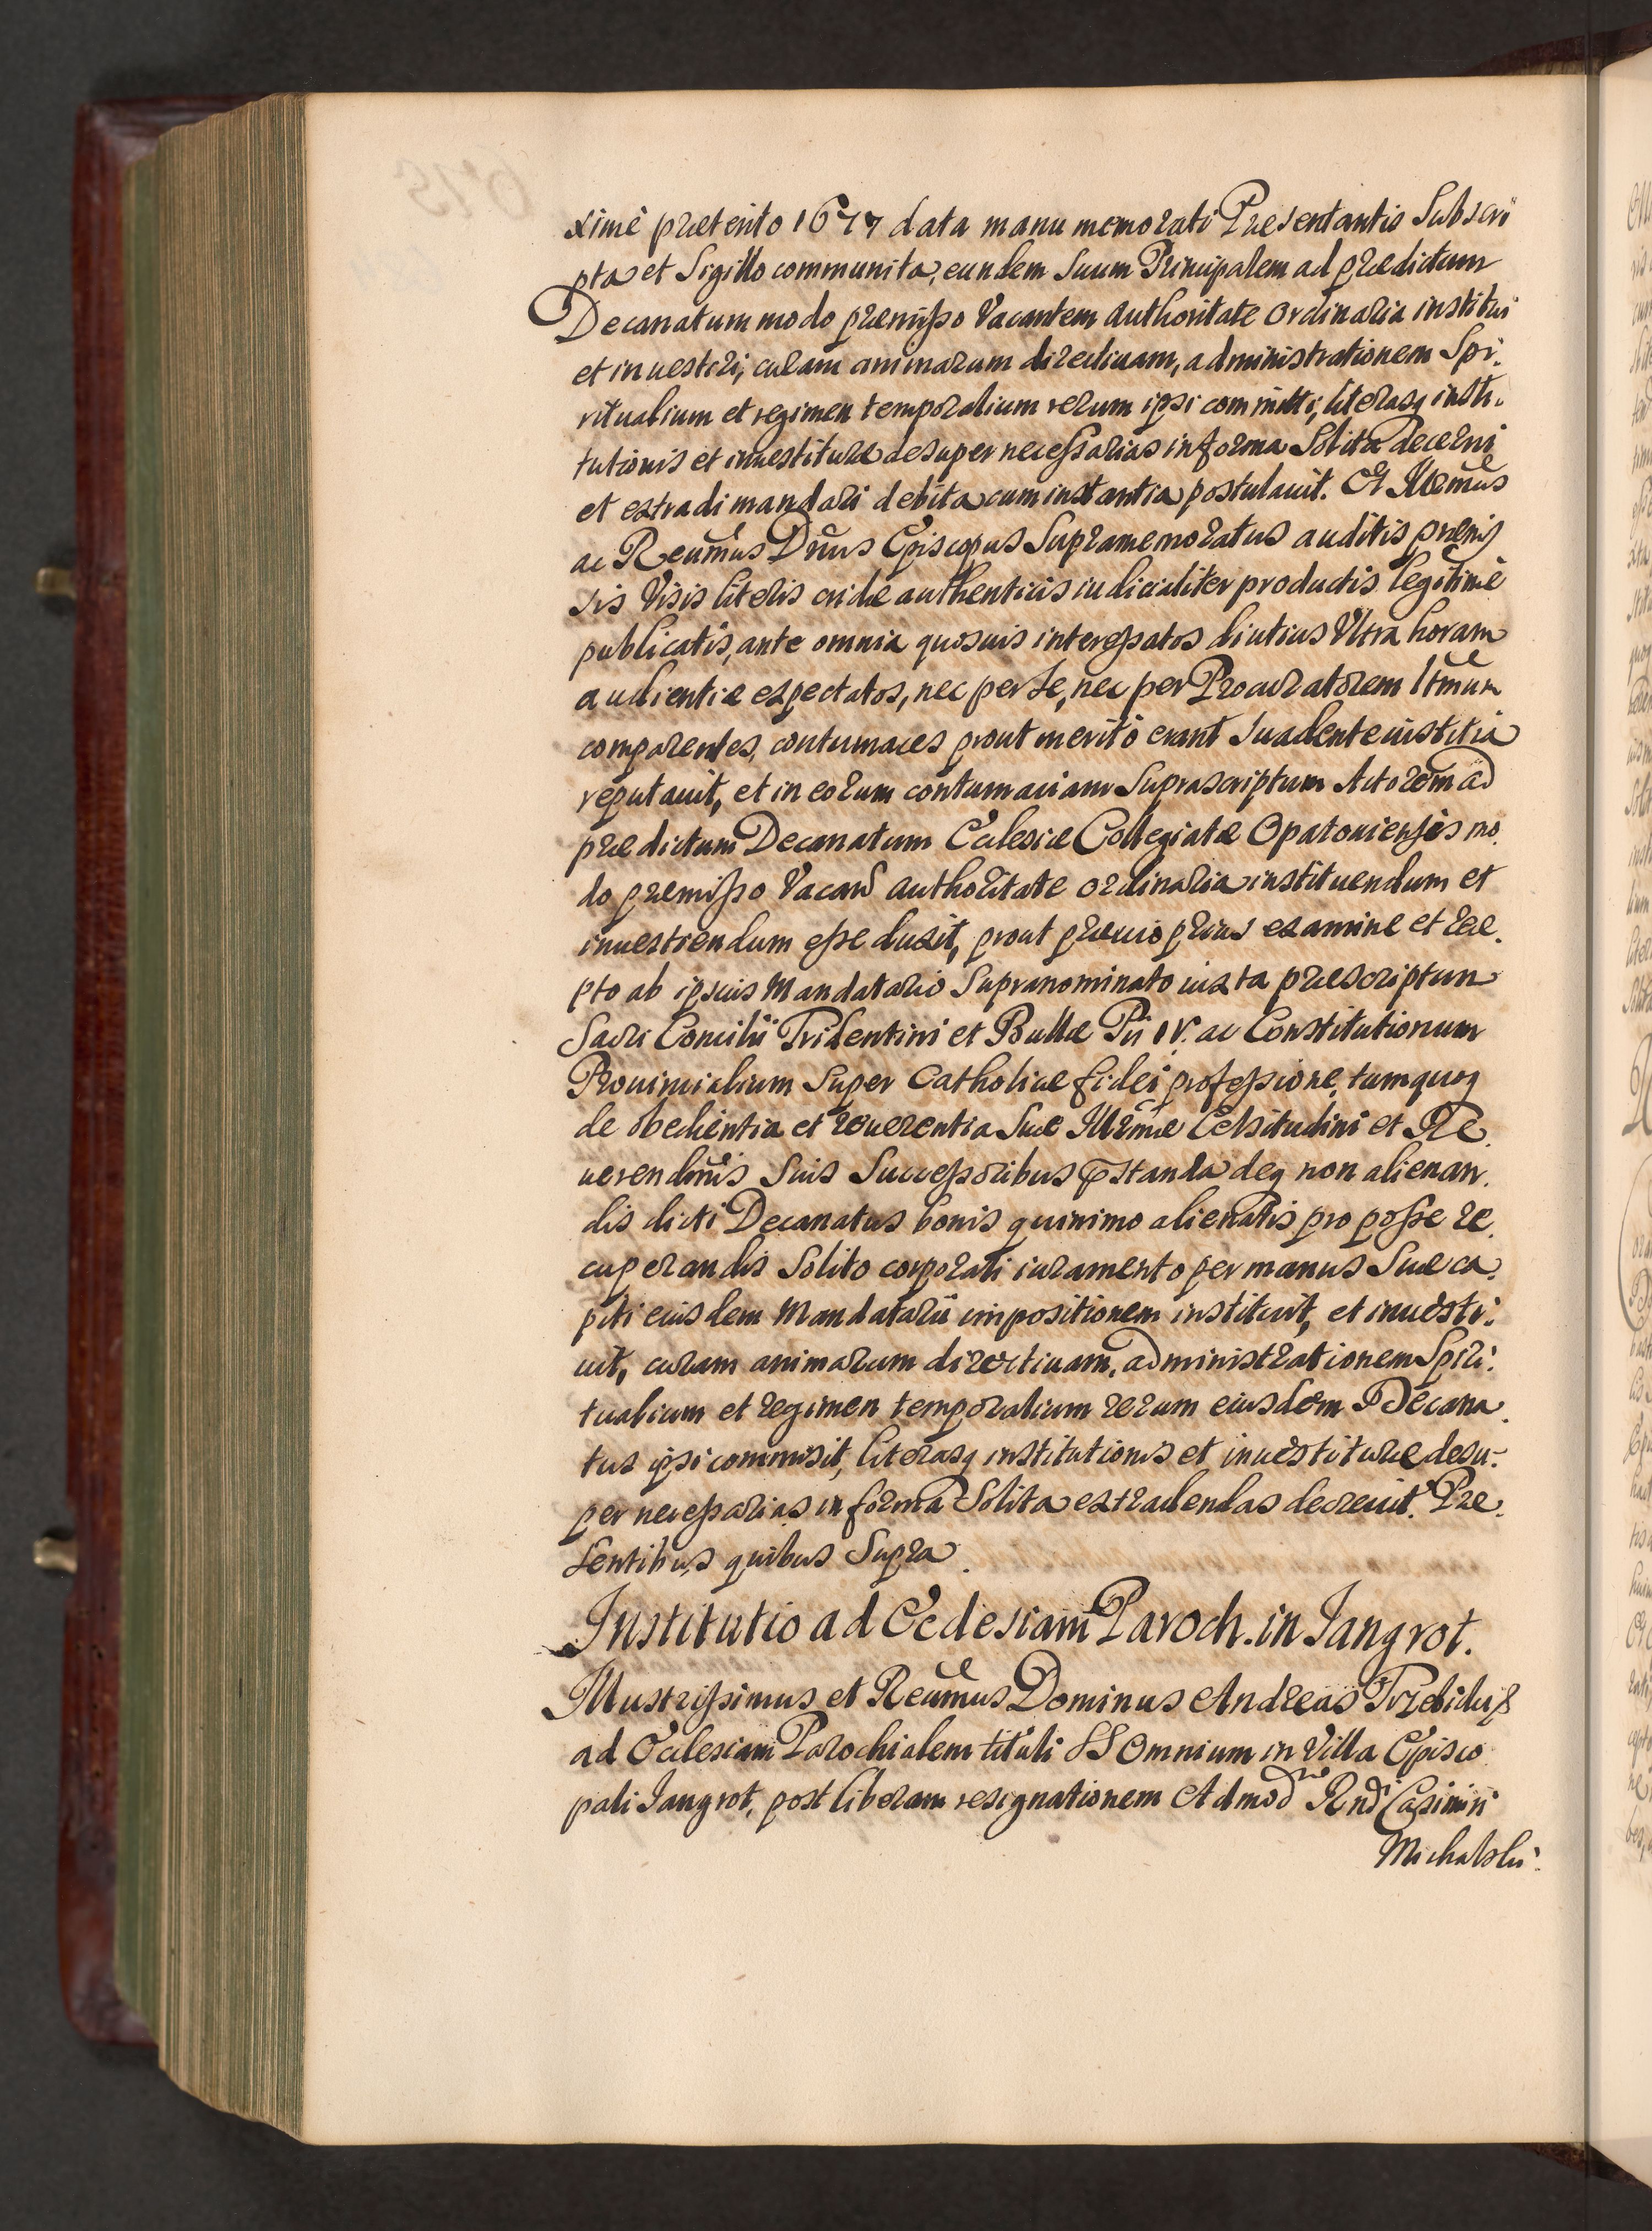 ximè præterito 1677 data manu memorati Præsentantis Subscri
pta et Sigillo communita, eundem Suum Principalem ad prædictum
Decanatum modo præmisso Vacantem Authoritate Ordinaria institui
et inuestiri, curam animarum directiuam, administrationem Spi.
ritualium et regimen temporalium rerum ipsi committi, literasq insti.
tutionis et inuestituræ desuper necessarias in forma Solita decerni
et extradi mandari debita cum instantia postulauit. Et Illrmus
ac Reumus Dnus Episcopus Supramemoratus auditis præmis
sis Visis literis cridæ authenticis iudicialiter productis legitimè
publicatis, ante omnia quosuis interessatos diutius Vltra horam
audientiæ expectatos, nec per se, nec per Procuratorem ltmum
comparentes, contumaces prout meritò erant Suadente iustitia
reputauit, et in eorum contumaciam Suprascriptum Actorem ad
prædictum Decanatum Ecclesiæ Collegiatæ Opatouiensis mo.
do præmisso Vacañ authoritate ordinaria instituendum et
inuestiendum esse duxit, prout præuio prius examine et rece.
pto ab ipsius Mandatario Supranominato iuxta præscriptum
Sacri Concilii Tridentini et Bullæ Pii IV. ac Constitutionum
Prouincialium Super Catholicæ fidei professione, tum quoq
de obedientia et reuerentia Suæ Illrmæ Celsitudini et Re.
uerendmis Suis Successoribus pstanda deq non alienan.
dis dicti Decanatus bonis quinimo alienatis pro posse re.
cuperandis Solito corporali iuramento per manus Suæ ca.
piti eiusdem Mandatarii impositionem instituit, et inuesti.
uit, curam animarum directiuam, administrationem Spiri.
tualium et regimen temporalium rerum eiusdem Decana.
tus ipsi commisit, literasq institutionis et inuestituræ desu.
per necessarias in forma Solita extradendas decreuit. Præ.
sentibus quibus Supra.
Institutio ad Ecclesiam Paroch. in Jangrot.
Illustrissimus et Reumus Dominus Andreas Trzebicky &
ad Ecclesiam Parochialem tituli SS Omnium in Villa Episco
pali Jangrot, post liberam resignationem Admod Rndi Casimiri
Michalski